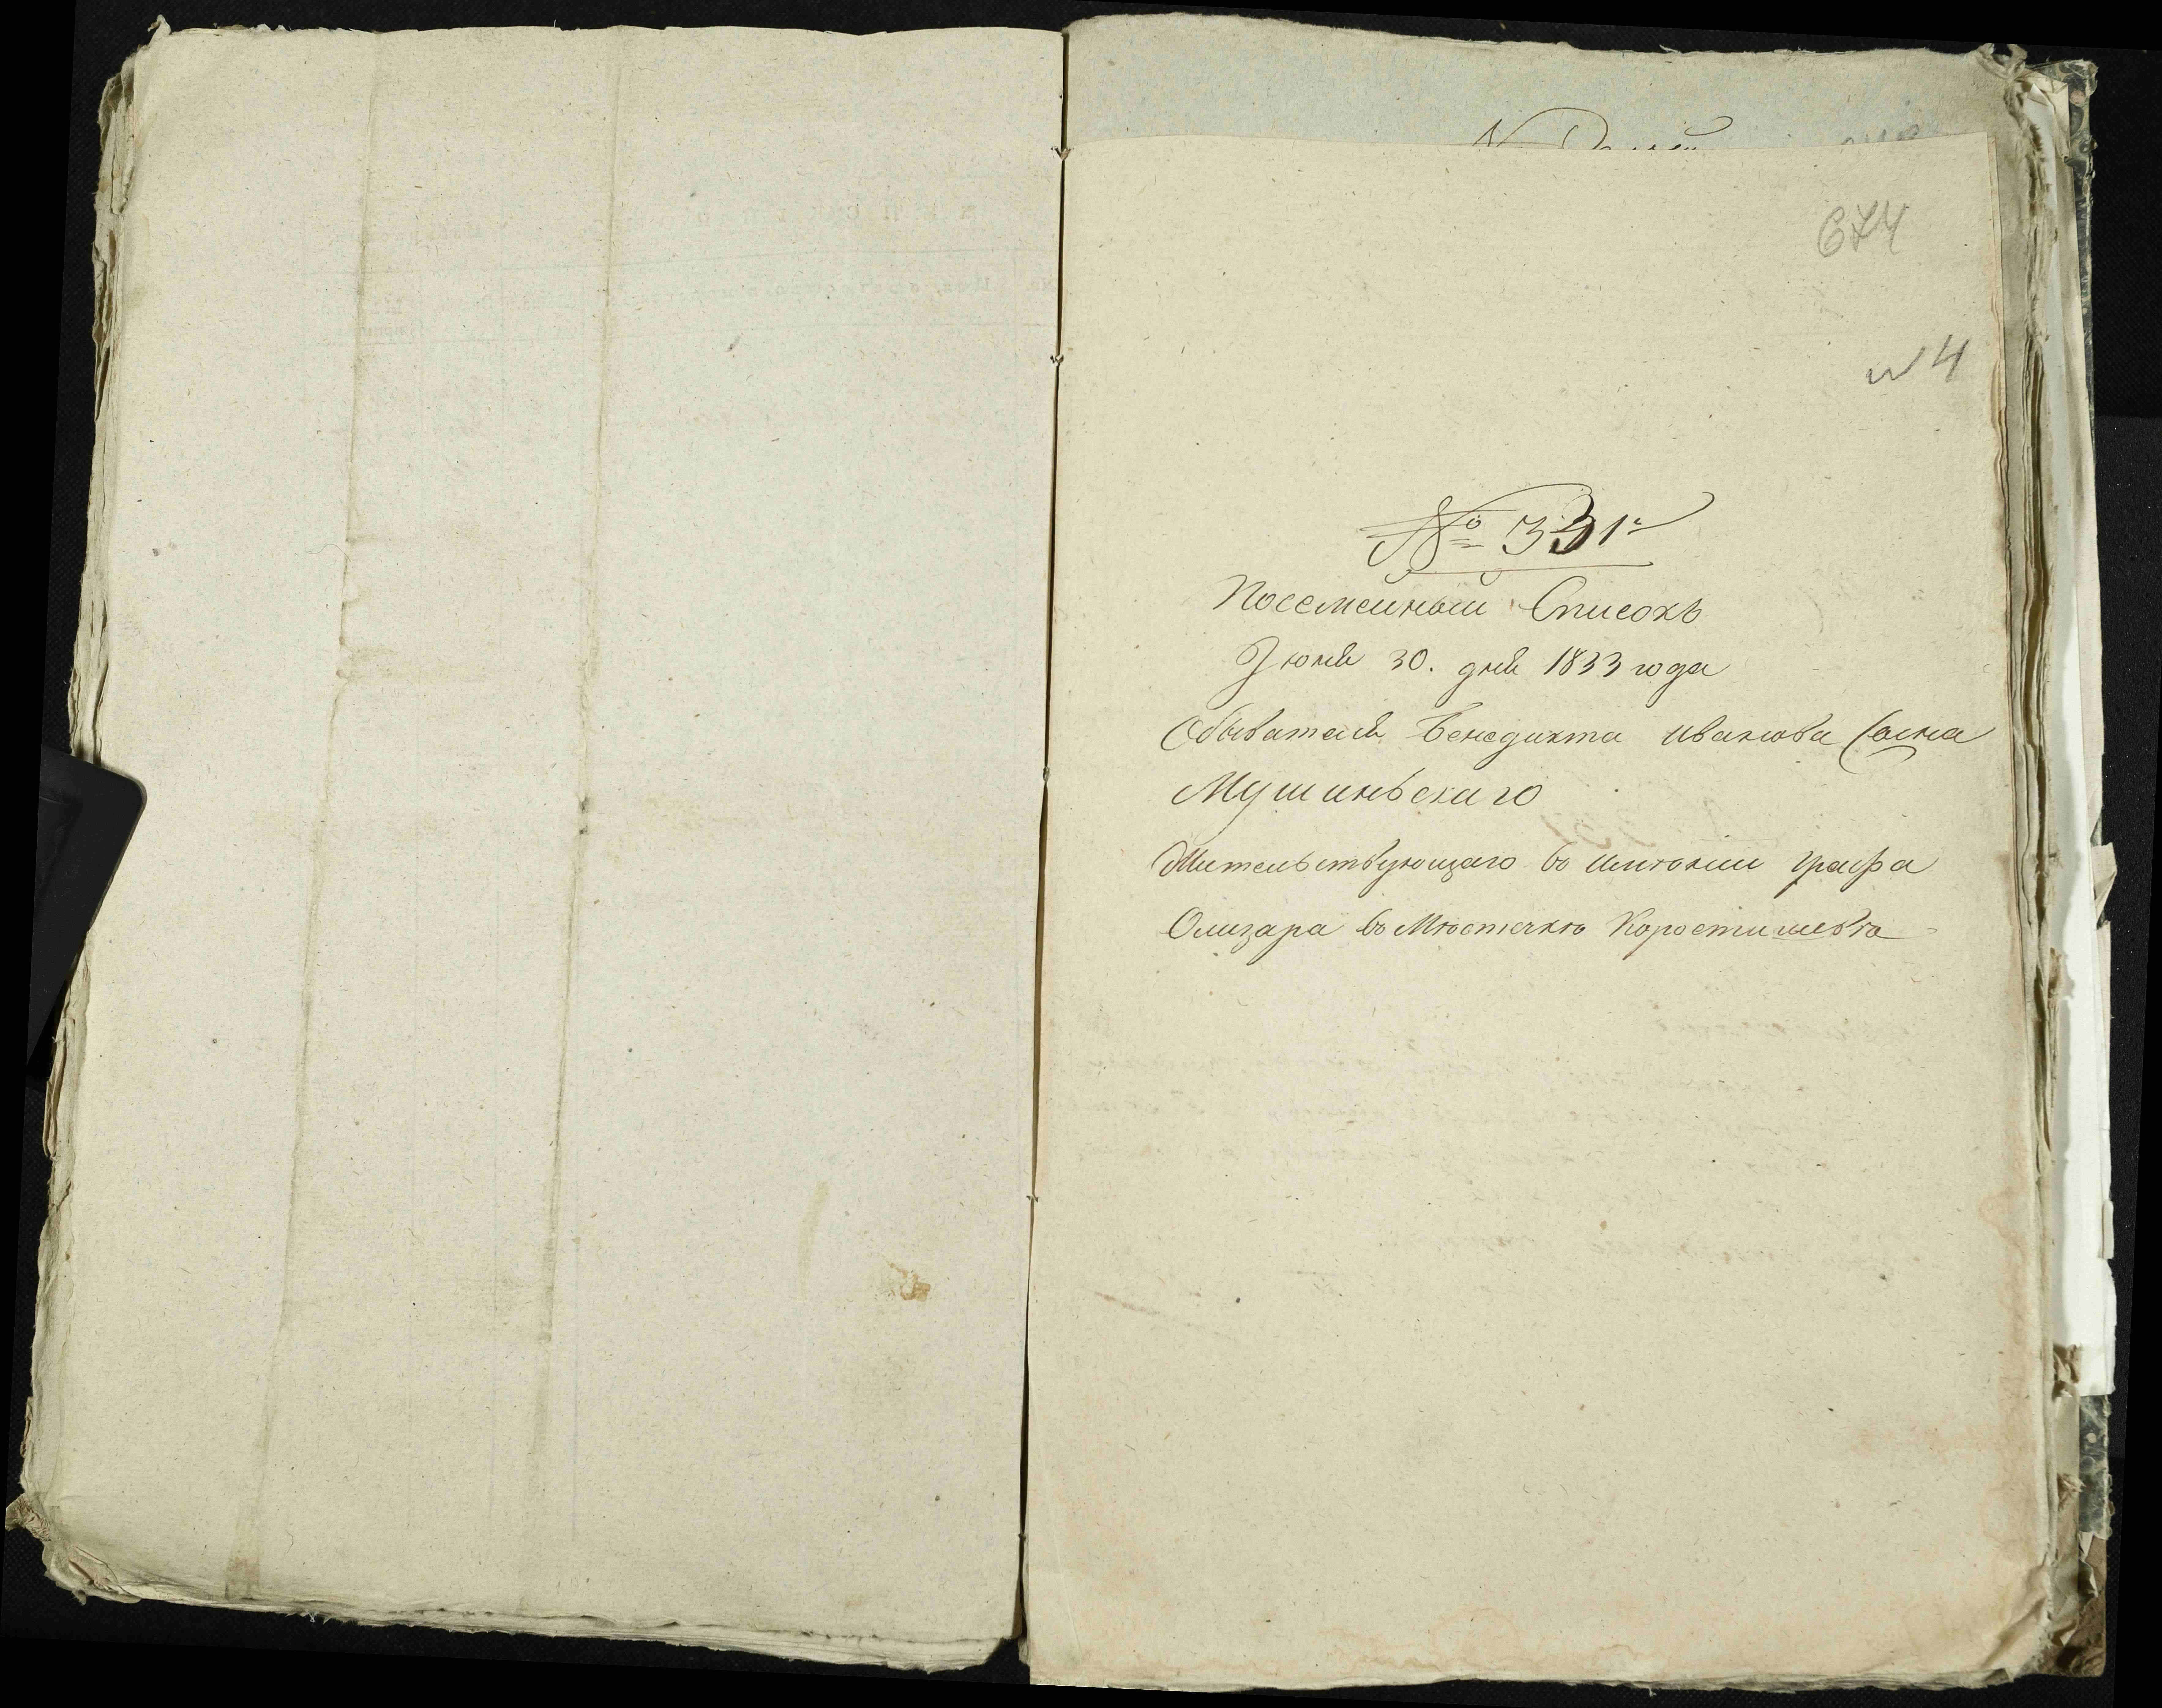 674
№ 4
№ 331й
Посемейный Списокъ
Іюня 30. дня 1833 года
Обывателя Бенедикта иванова Сына
Мушиньскаго
Жительствующаго во имѣнии графа
Олизара во Мѣстечкѣ Коростишевѣ